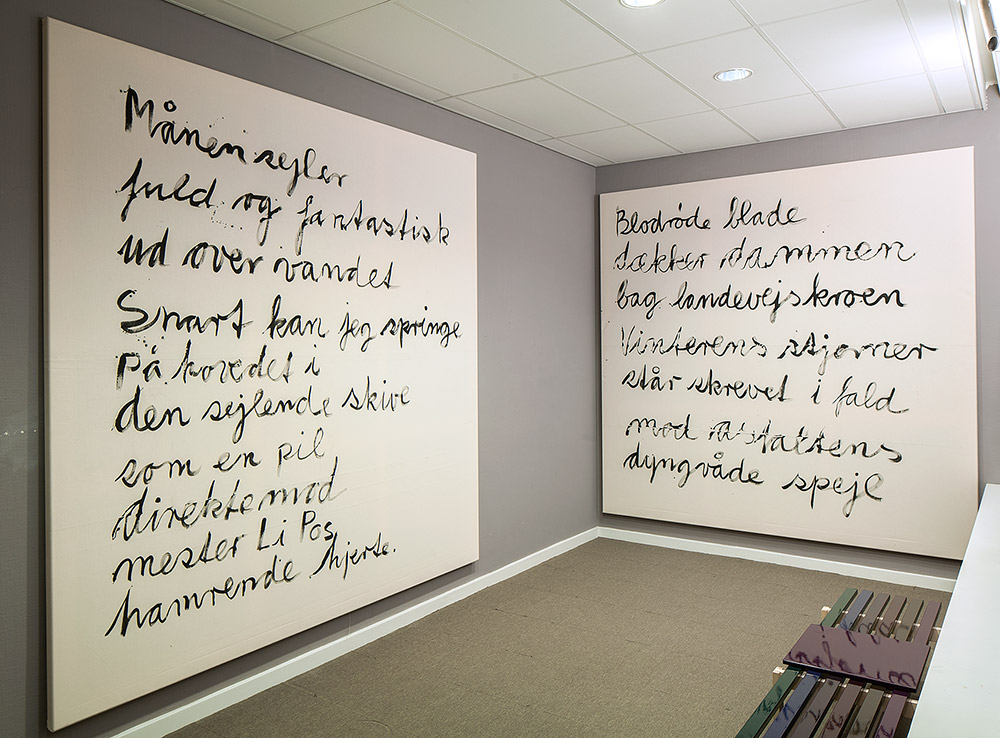 Månen sejler
fuld og fantastisk
ud over vandet
Snart kan jeg springe
På hovedet i
den sejlende skive
som en pil
direkte mod
mester Li Pos
hamrende hjerte.
Blodrøde blade
dækker dammen
bag landevejskroen
Vinterens stjerner
står skrevet i fald
mod asfaltens
dyngvåde spejl